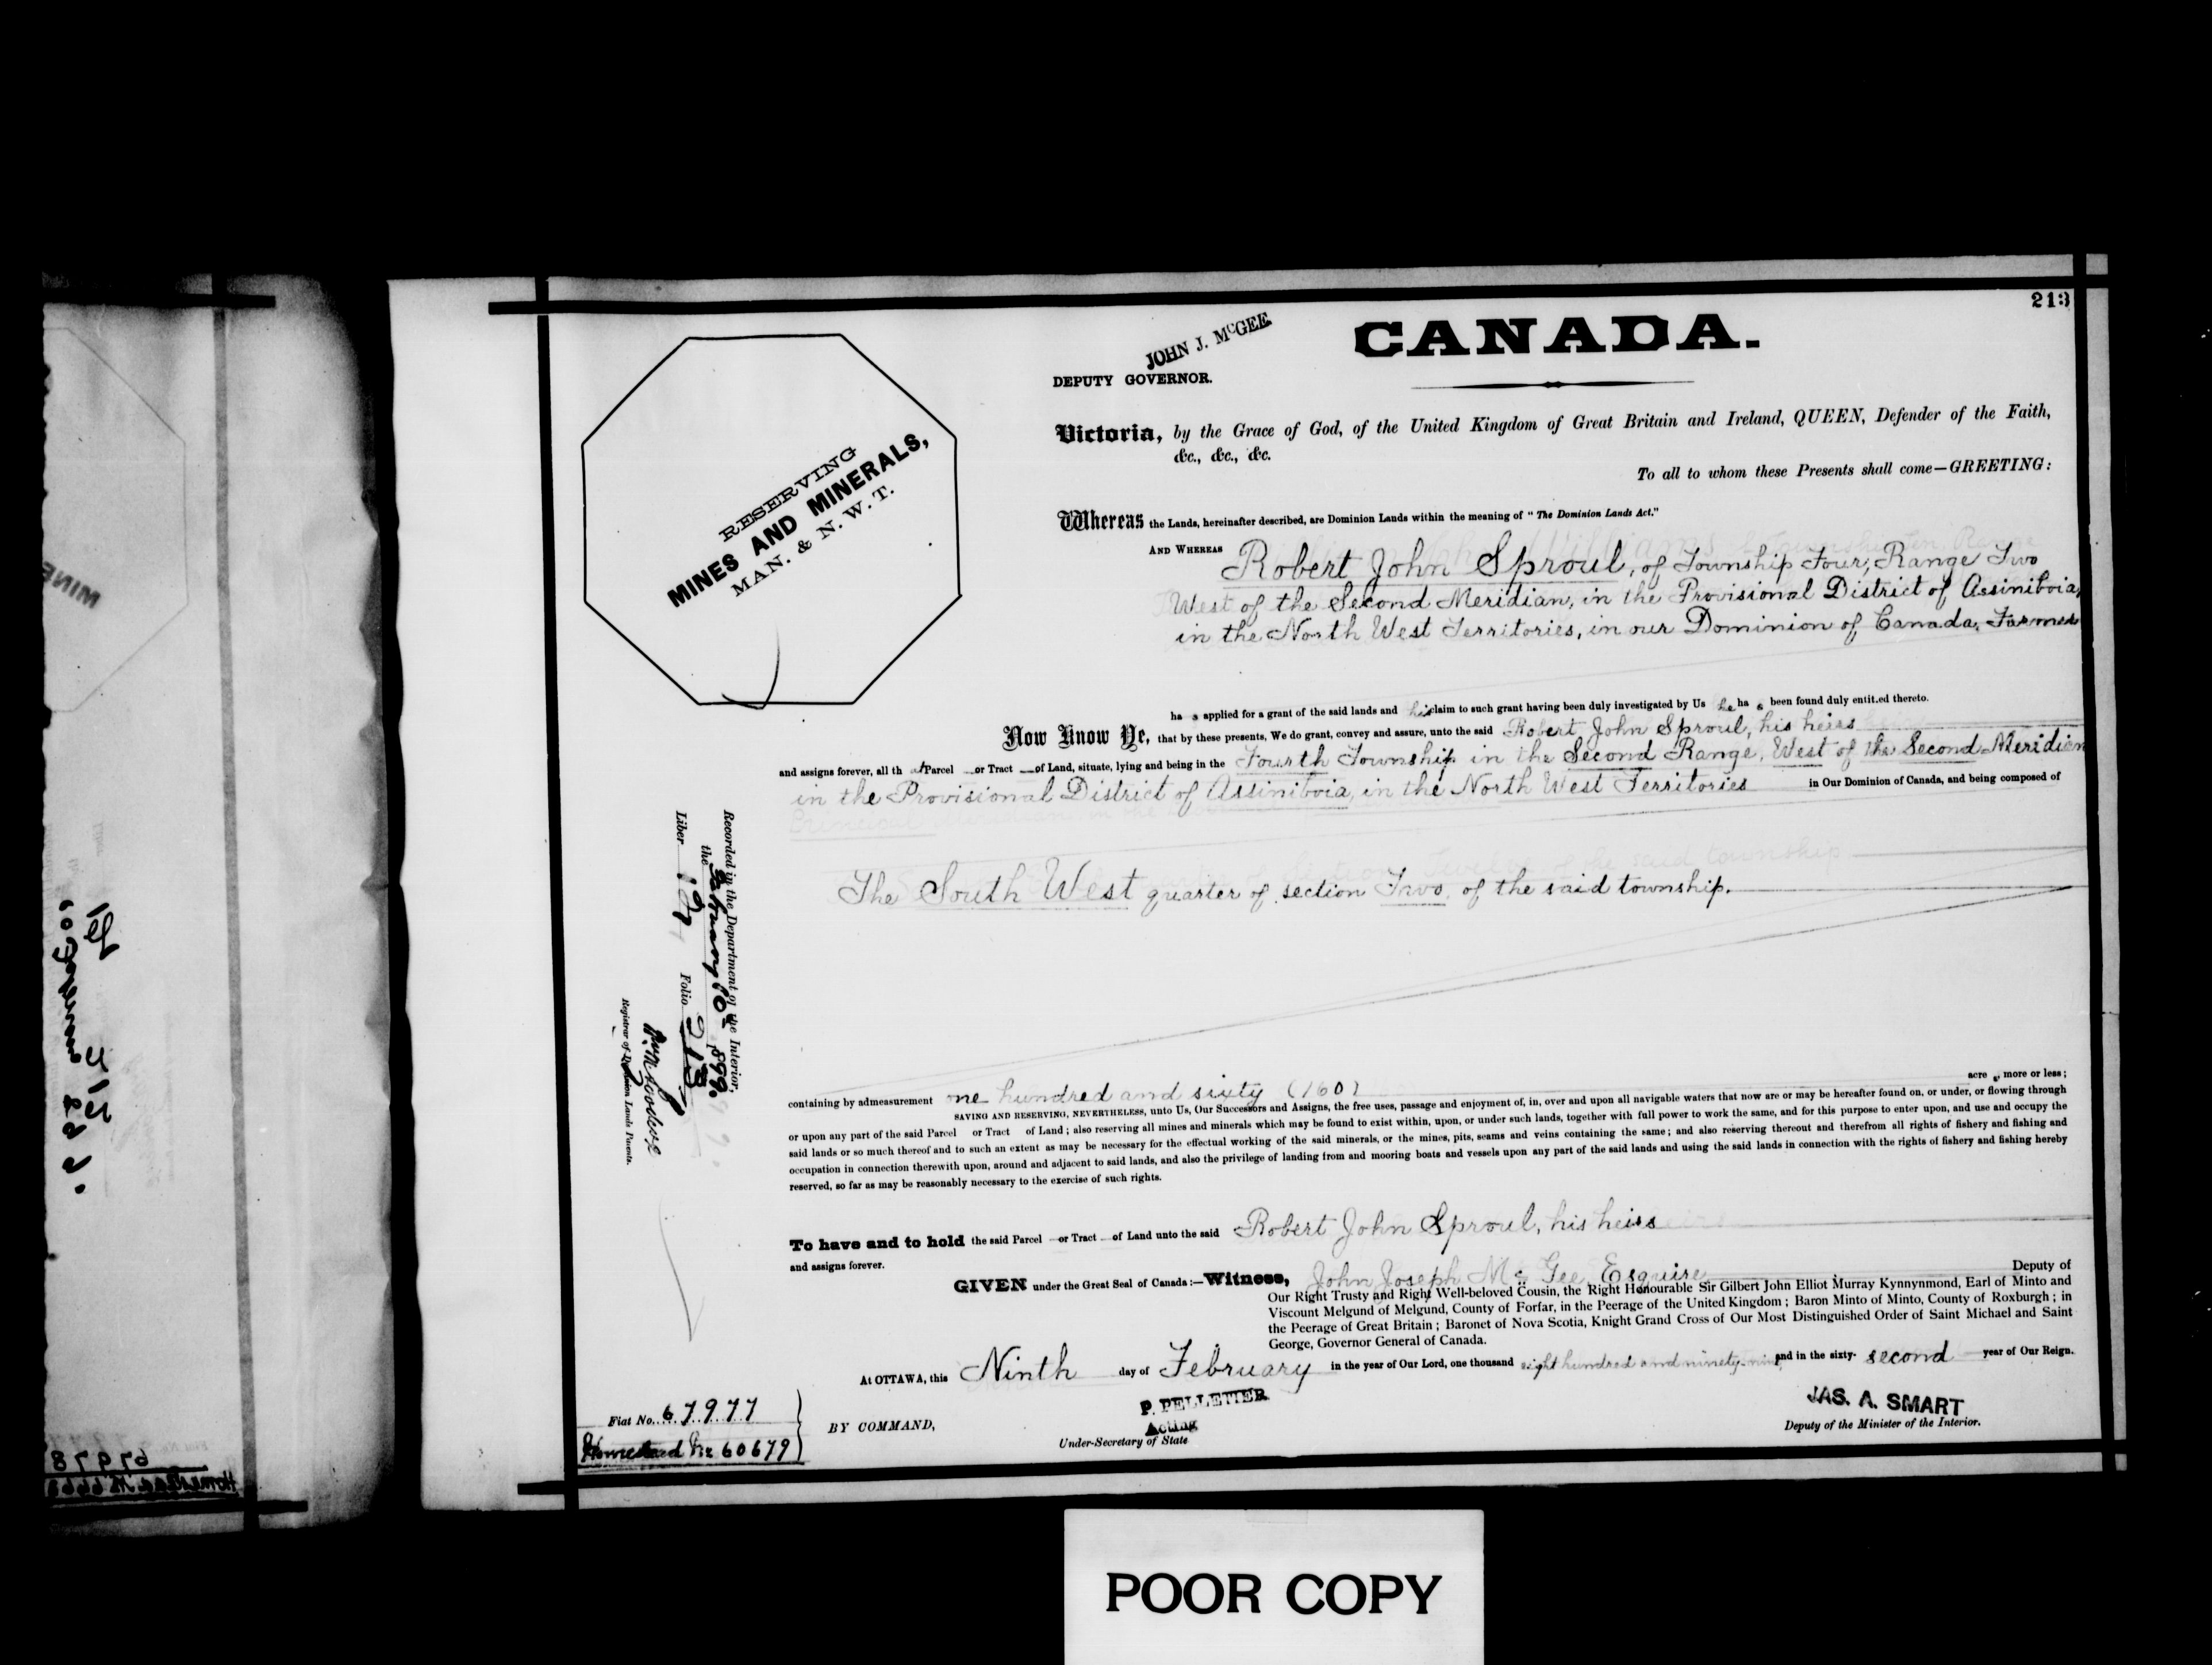 213
CANADA.
JOHN J. McGEE
DEPUTY GOVERNOR.
Victoria, by the Grace of God, of the United Kingdom of Great Britain and Ireland, QUEEN, Defender of the Faith,
&c., &c., &c.
To all to whom these Presents shall come—GREETING:
RESERVING
MINES AND MINERALS,
MAN. & N. W. T.
Whereas the Lands, hereinafter described, are Dominion Lands within the meaning of "The Dominion Lands Act."
AND WHEREAS Robert John Sproul, of Township Four, Range Two
West of the Second Meridian, in the Provisional District of Assiniboia,
in the North West Territories, in our Dominion of Canada, Farmer
ha s applied for a grant of the said lands and his claim to such grant having been duly investigated by Us he ha s been found duly entitled thereto.
Now Know Ye, that by these presents, We do grant, convey and assure, unto the said Robert John Sproul, his heirs
and assigns forever, all th at Parcel or Tract of Land, situate, lying and being in the Fourth Township in the Second Range, West of the Second Meridian
in the Provisional District of Assiniboia, in the North West Territories in Our Dominion of Canada, and being composed of
The South West quarter of section Two, of the said township.
Recorded in the Department of the Interior,
the February 10th 1899.
Liber 197 Folio 213
Registrar of Dominion Lands Patents.
containing by admeasurement one hundred and sixty (160) acre s, more or less;
SAVING AND RESERVING, NEVERTHELESS, unto Us, Our Successors and Assigns, the free uses, passage and enjoyment of, in, over and upon all navigable waters that now are or may be hereafter found on, or under, or flowing through
or upon any part of the said Parcel or Tract of Land; also reserving all mines and minerals which may be found to exist within, upon, or under such lands, together with full power to work the same, and for this purpose to enter upon, and use and occupy the
said lands or so much thereof and to such an extent as may be necessary for the effectual working of the said minerals, or the mines, pits, seams and veins containing the same; and also reserving thereout and therefrom all rights of fishery and fishing and
occupation in connection therewith upon, around and adjacent to said lands, and also the privilege of landing from and mooring boats and vessels upon any part of the said lands and using the said lands in connection with the rights of fishery and fishing hereby
reserved, so far as may be reasonably necessary to the exercise of such rights.
To have and to hold the said Parcel or Tract of Land unto the said Robert John Sproul, his heirs
and assigns forever.
GIVEN under the Great Seal of Canada:—Witness, John Joseph McGee, Esquire Deputy of
Our Right Trusty and Right Well-beloved Cousin, the Right Honourable Sir Gilbert John Elliot Murray Kynnynmond, Earl of Minto and
Viscount Melgund of Melgund, County of Forfar, in the Peerage of the United Kingdom; Baron Minto of Minto, County of Roxburgh; in
the Peerage of Great Britain; Baronet of Nova Scotia, Knight Grand Cross of Our Most Distinguished Order of Saint Michael and Saint
George, Governor General of Canada.
At OTTAWA, this Ninth day of February in the year of Our Lord, one thousand eight hundred and ninety-nine and in the sixty- second year of Our Reign.
Fiat No. 67977
Homestead No 60679
BY COMMAND,
P. PELLETIER
Acting
Under-Secretary of State
JAS. A. SMART
Deputy of the Minister of the Interior.
POOR COPY